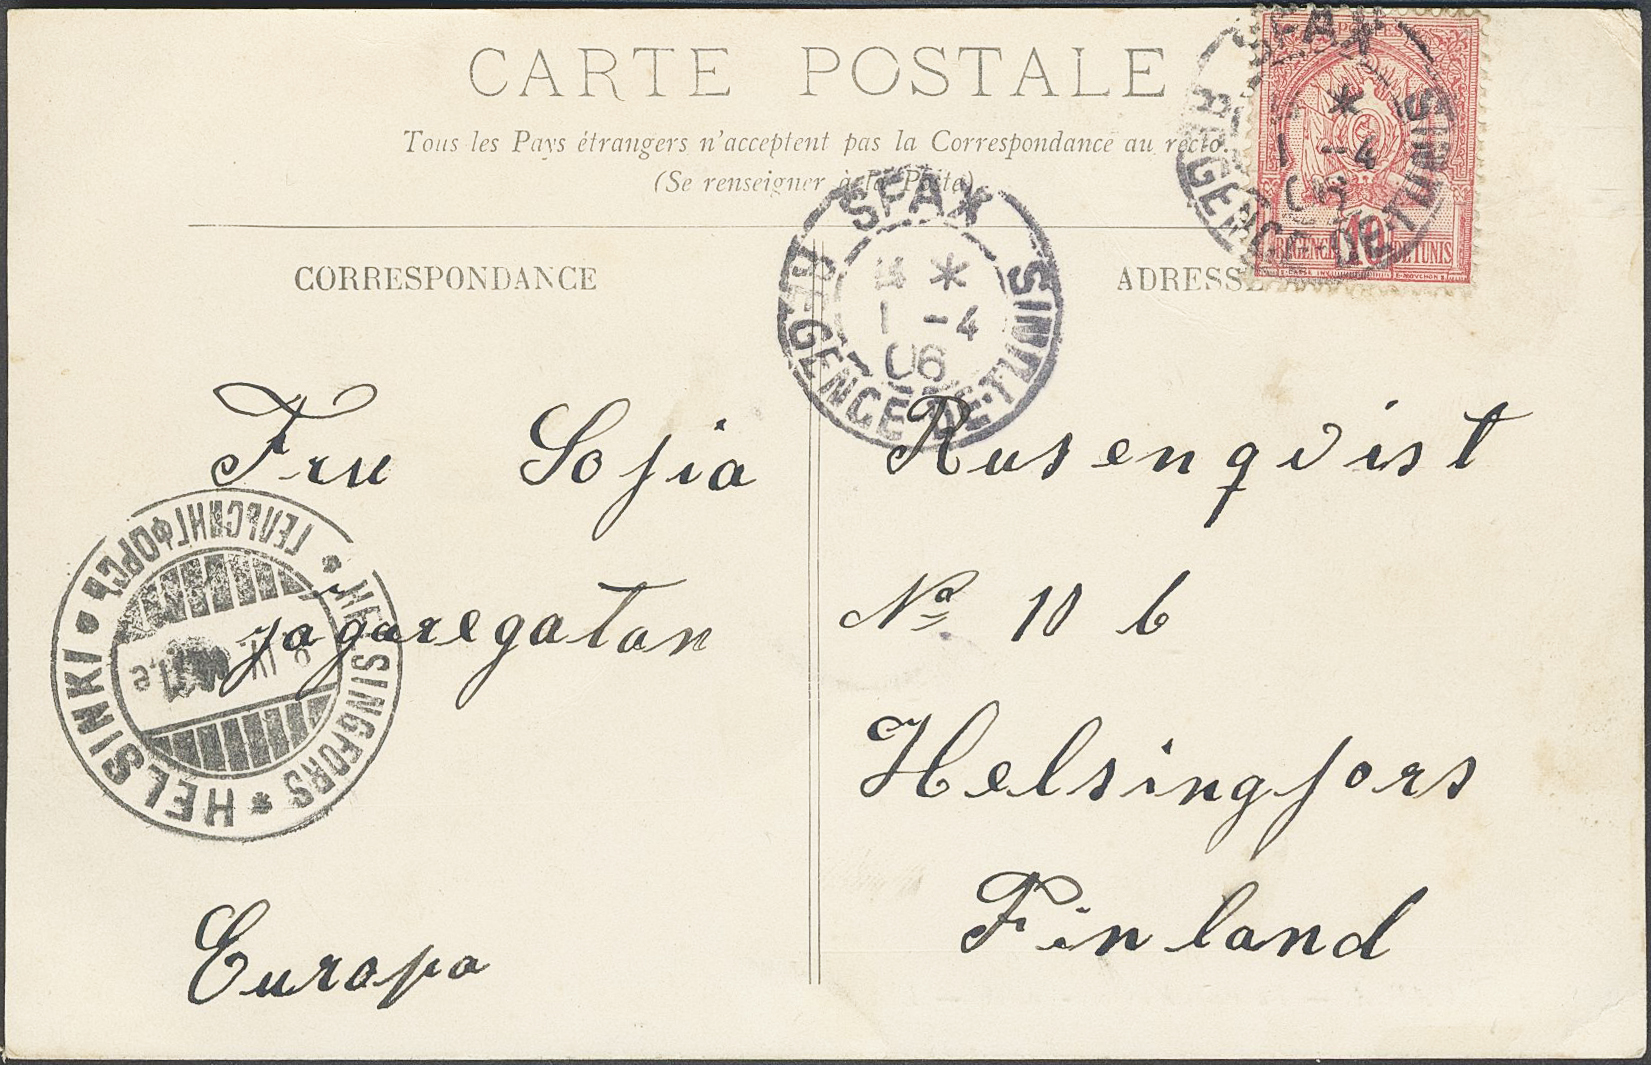 CARTE POSTALE
Tous les Pays étrangers n'acceptent pas la Correspondance au recto.
(Se renseigner à la Poste)
CORRESPONDANCE
ADRESSE
SFAX
*
1 -4
06
REGENCE·DE·TUNIS
SFAX
*
1 -4
06
REGENCE·DE·TUNIS
10
REGENCE DE TUNIS
Fru Sofia Rusenqvist
jagaregatan No 10 b
Helsingfors
Europa Finland
HELSINGFORS * HELSINKI • ГЕЛЬСИНГФОРСЪ